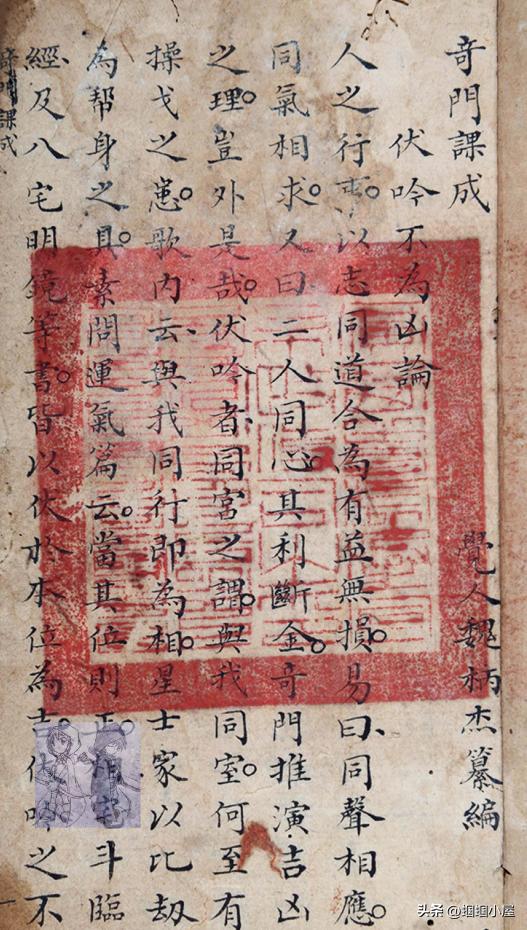 奇門課成
覺人魏柄杰纂編
伏吟不為凶論
人之行事。以志同道合為有益無損。易曰、同聲相應。
同氣相求。又曰二人同心。其利斷金。奇門推演吉凶
之理。豈外是哉。伏吟者、同宮之謂。與我同室。何至有
操戈之患。歌内云、與我同行即為相。星士家以比劫
為帮身之具。素問運氣篇云。當其位則正。相宅斗臨
經及八宅明鏡等書。皆以伏於本位為吉。伏吟之不
奇門課成
头条 @蝈蝈小屋